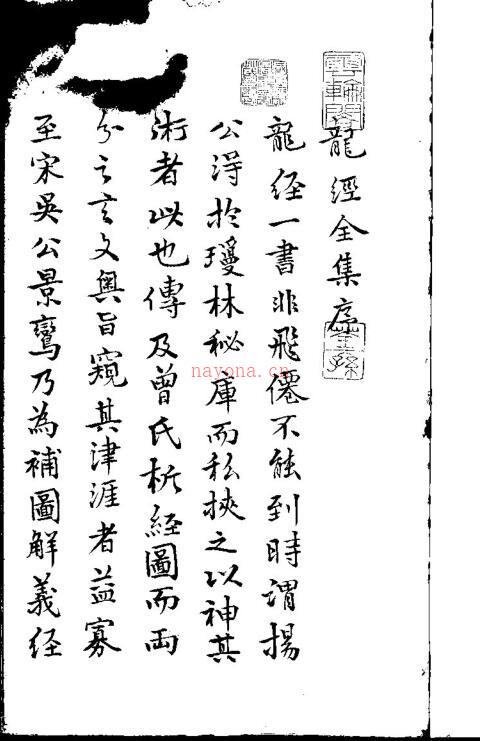 雲輪閣
龍經全集序
荃孫
龍經一書非飛僊不能到時謂揚
公淂於瓊林秘庫而私挾之以神其
術者此也傳及曾氏析經圖而両
分之玄文奧旨窺其津涯者益寡
至宋吳公景鸞乃為補圖解義経
nayona.cn